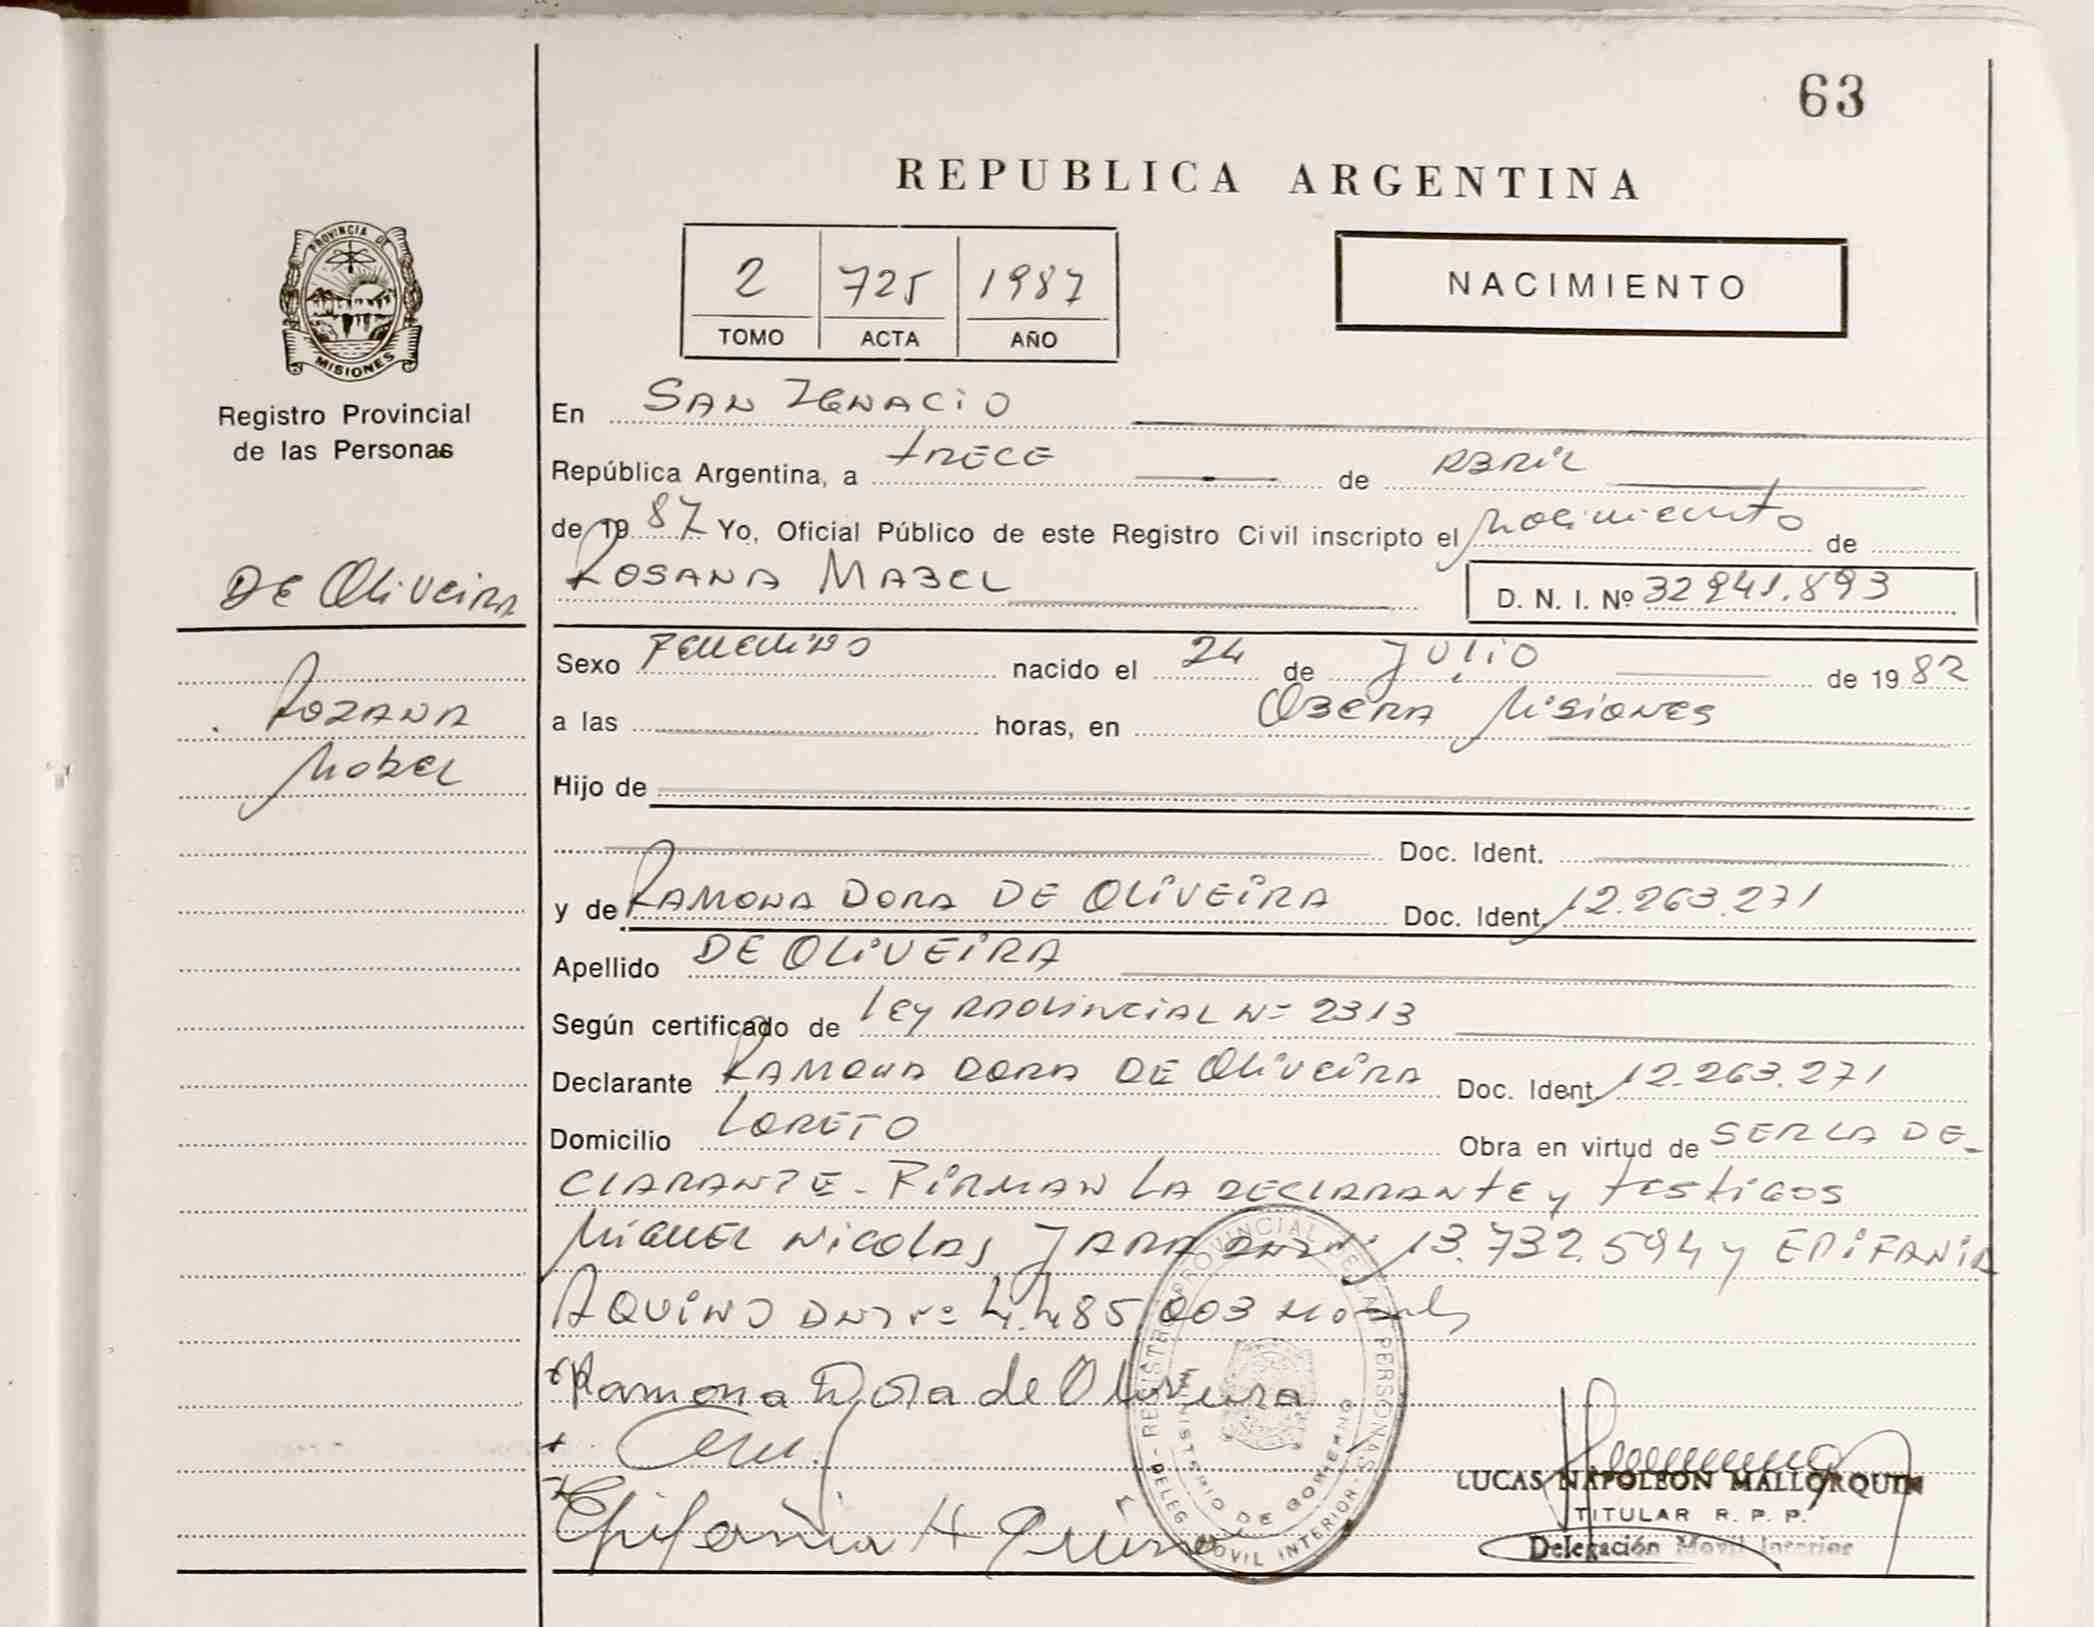 63
REPUBLICA ARGENTINA
PROVINCIA DE
MISIONES
Registro Provincial
de las Personas
2 725 1987
TOMO ACTA AÑO
NACIMIENTO
En SAN IGNACIO
República Argentina, a trece de ABRIL
de 1987 Yo, Oficial Público de este Registro Civil inscripto el Nacimiento de
De Oliveira
ROSANA MABEL
D. N. I. Nº 32.941.893
Sexo Femenino nacido el 24 de Julio de 1982
Rozana
a las horas, en OBERA Misiones
Mabel
Hijo de
Doc. Ident.
y de RAMONA DORA DE OLIVEIRA Doc. Ident. 12.263.271
Apellido DE OLIVEIRA
Según certificado de Ley PROVINCIAL Nº 2313
Declarante RAMONA DORA DE OLIVEIRA Doc. Ident. 12.263.271
Domicilio LORETO Obra en virtud de SER LA DE-
CLARANTE - FIRMAN LA DECLARANTE y testigos
MIGUEL NICOLAS JARA 13.732.594 y EPIFANIA
AQUINO DNI Nº 4.485.003
Ramona Dora de Oliveira
Epifania A Quino
REGISTRO PROVINCIAL DE LAS PERSONAS
MINISTERIO DE GOBIERNO
DELEG. MOVIL INTERIOR
LUCAS NAPOLEON MALLORQUIN
TITULAR R. P. P.
Delegación Movil Interior